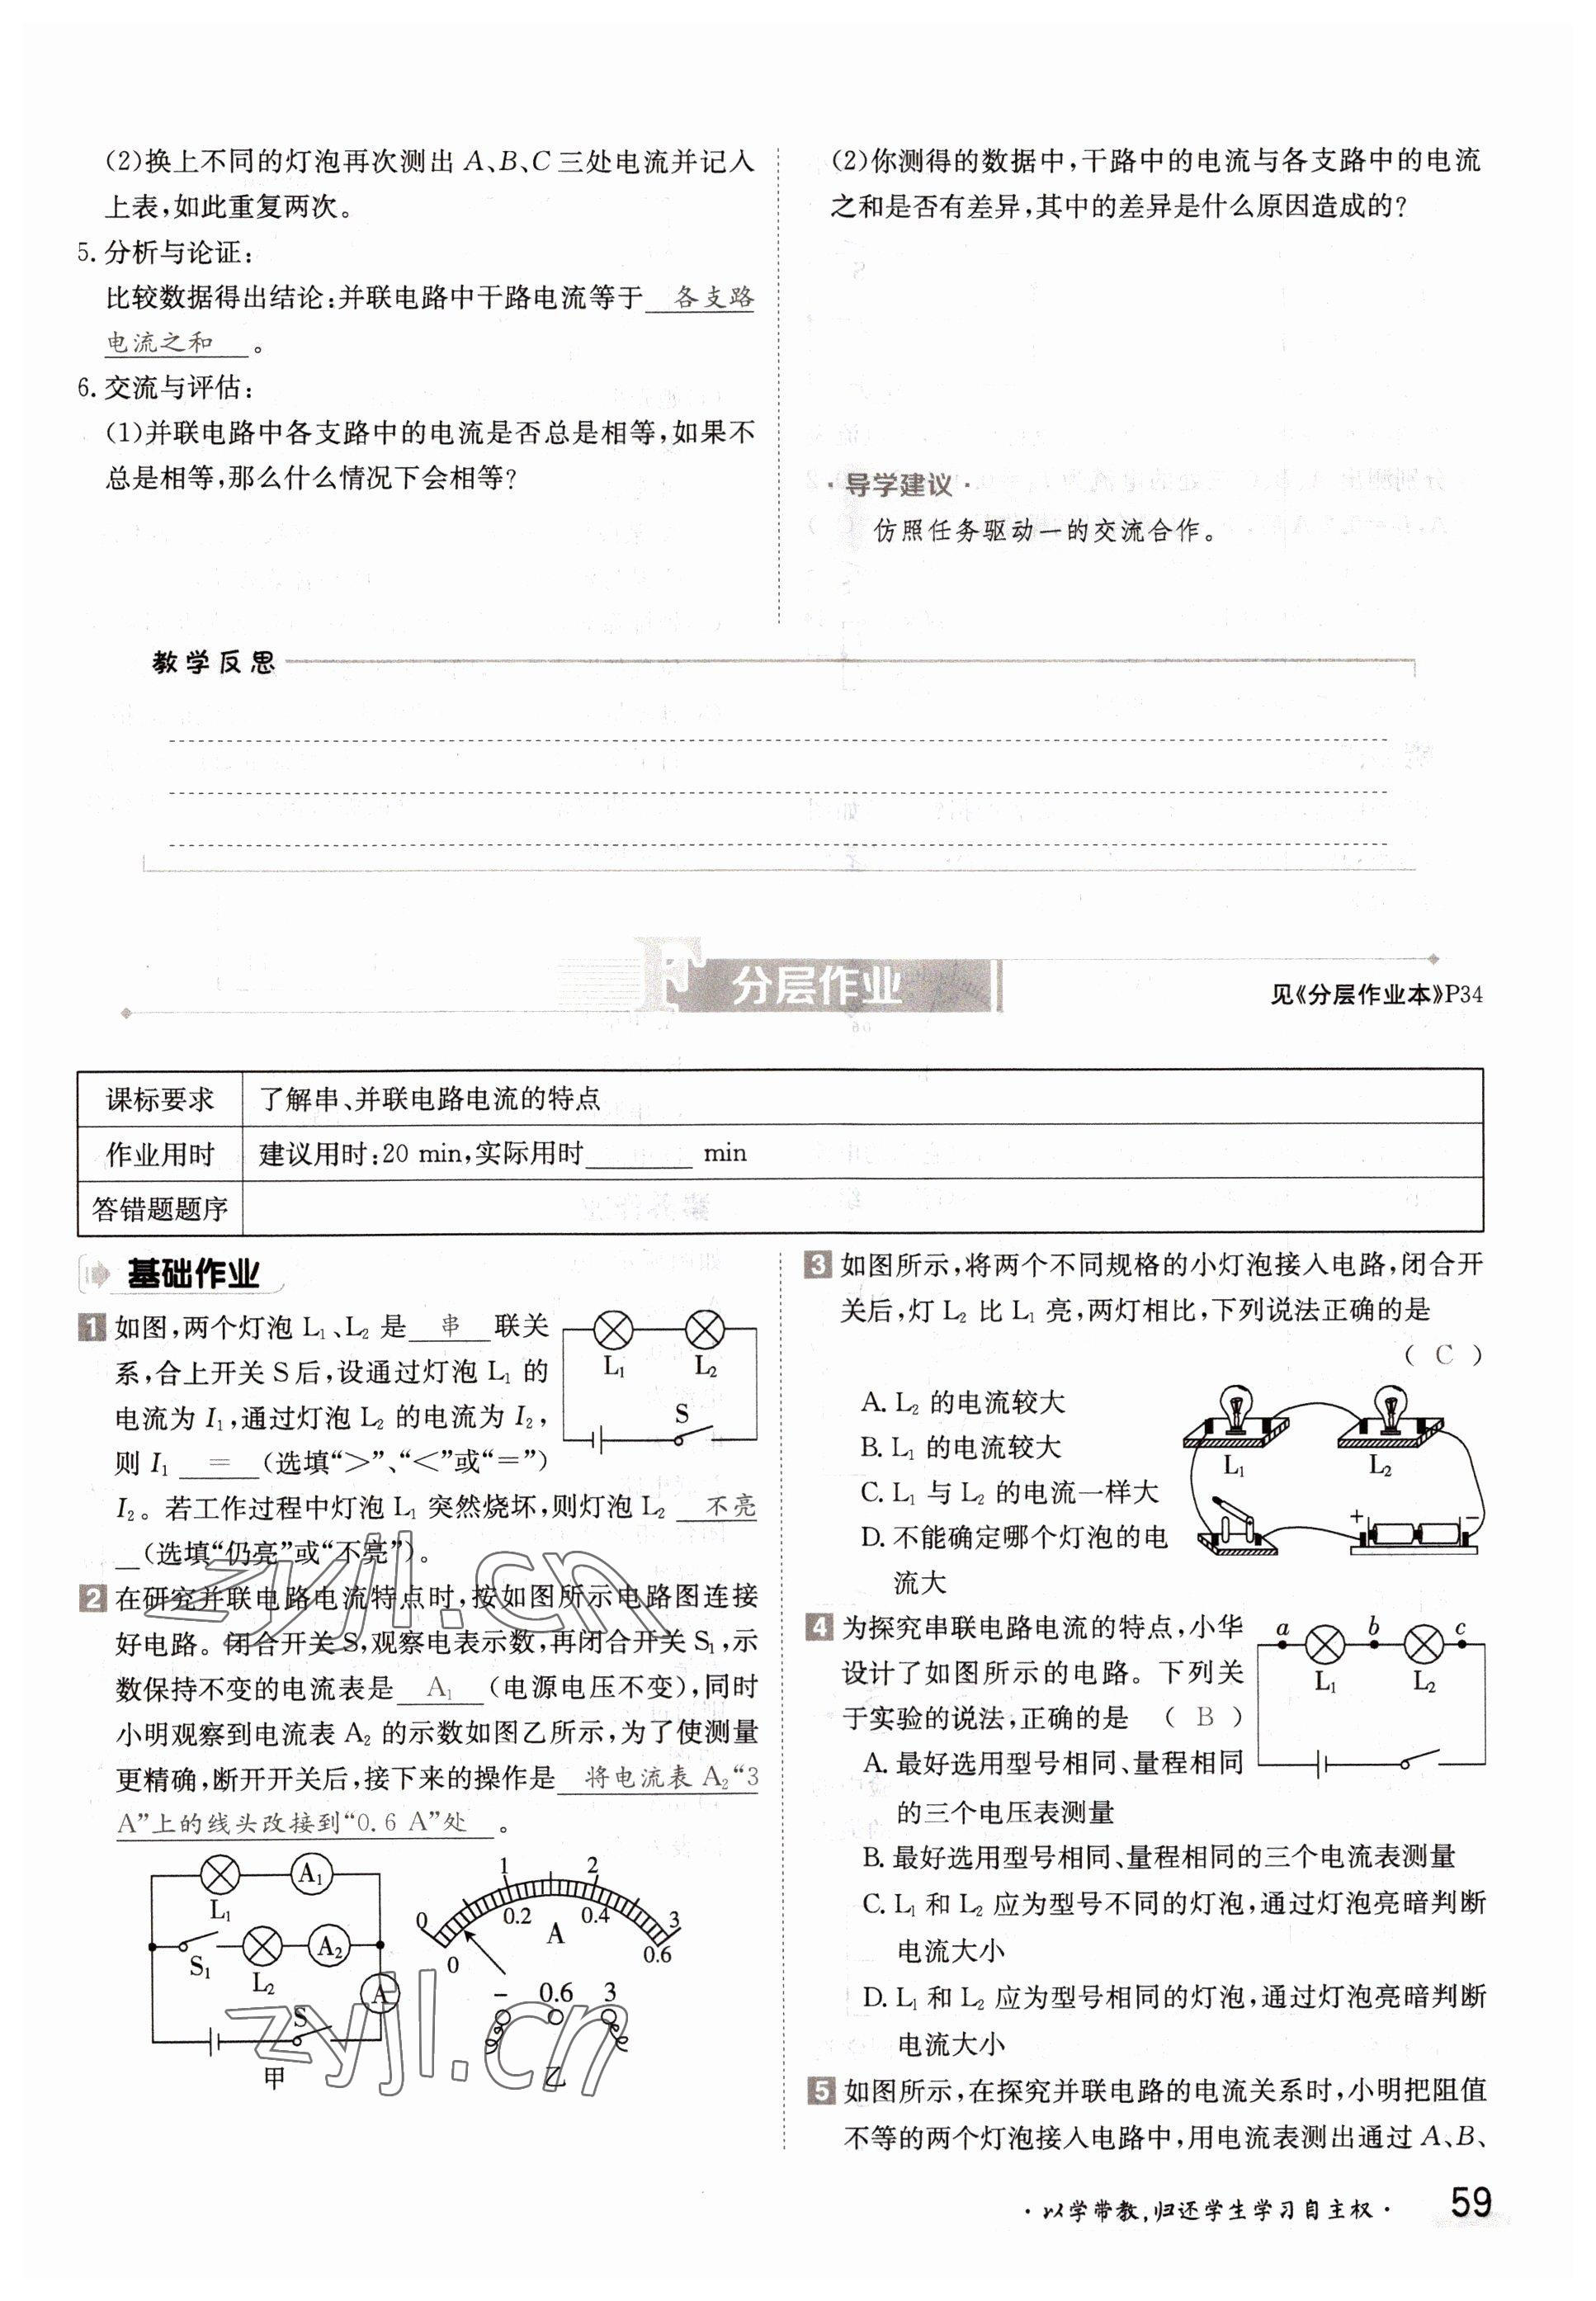 (2)换上不同的灯泡再次测出 A、B、C三处电流并记入
上表,如此重复两次。
5. 分析与论证:
比较数据得出结论:并联电路中干路电流等于 各支路
电流之和 。
6. 交流与评估:
(1)并联电路中各支路中的电流是否总是相等,如果不
总是相等,那么什么情况下会相等?
(2)你测得的数据中,干路中的电流与各支路中的电流
之和是否有差异,其中的差异是什么原因造成的?
·导学建议·
仿照任务驱动一的交流合作。
教学反思
F 分层作业
见《分层作业本》P34
课标要求 了解串、并联电路电流的特点
作业用时 建议用时:20 min,实际用时________ min
答错题题序
基础作业
1 如图,两个灯泡 L₁、L₂ 是 串 联关
系,合上开关 S 后,设通过灯泡 L₁ 的
电流为 I₁,通过灯泡 L₂ 的电流为 I₂,
则 I₁ = (选填“>”、“<”或“=”)
I₂。若工作过程中灯泡 L₁ 突然烧坏,则灯泡 L₂ 不亮
(选填“仍亮”或“不亮”)。
L₁ L₂
S
2 在研究并联电路电流特点时,按如图所示电路图连接
好电路。闭合开关 S,观察电表示数,再闭合开关 S₁,示
数保持不变的电流表是 A₁ (电源电压不变),同时
小明观察到电流表 A₂ 的示数如图乙所示,为了使测量
更精确,断开开关后,接下来的操作是 将电流表 A₂“3
A”上的线头改接到“0.6 A”处 。
L₁ A₁
S₁ L₂ A₂
A
S
甲
0 1 2 3
0 0.2 0.4 0.6
A
- 0.6 3
乙
3 如图所示,将两个不同规格的小灯泡接入电路,闭合开
关后,灯 L₂ 比 L₁ 亮,两灯相比,下列说法正确的是
( C )
A. L₂ 的电流较大
B. L₁ 的电流较大
C. L₁ 与 L₂ 的电流一样大
D. 不能确定哪个灯泡的电
流大
L₁ L₂
+ -
4 为探究串联电路电流的特点,小华
设计了如图所示的电路。下列关
于实验的说法,正确的是 ( B )
A. 最好选用型号相同、量程相同
的三个电压表测量
B. 最好选用型号相同、量程相同的三个电流表测量
C. L₁ 和 L₂ 应为型号不同的灯泡,通过灯泡亮暗判断
电流大小
D. L₁ 和 L₂ 应为型号相同的灯泡,通过灯泡亮暗判断
电流大小
a b c
L₁ L₂
5 如图所示,在探究并联电路的电流关系时,小明把阻值
不等的两个灯泡接入电路中,用电流表测出通过 A、B、
·以学带教,归还学生学习自主权·
59
zyjl.cn
zyjl.cn